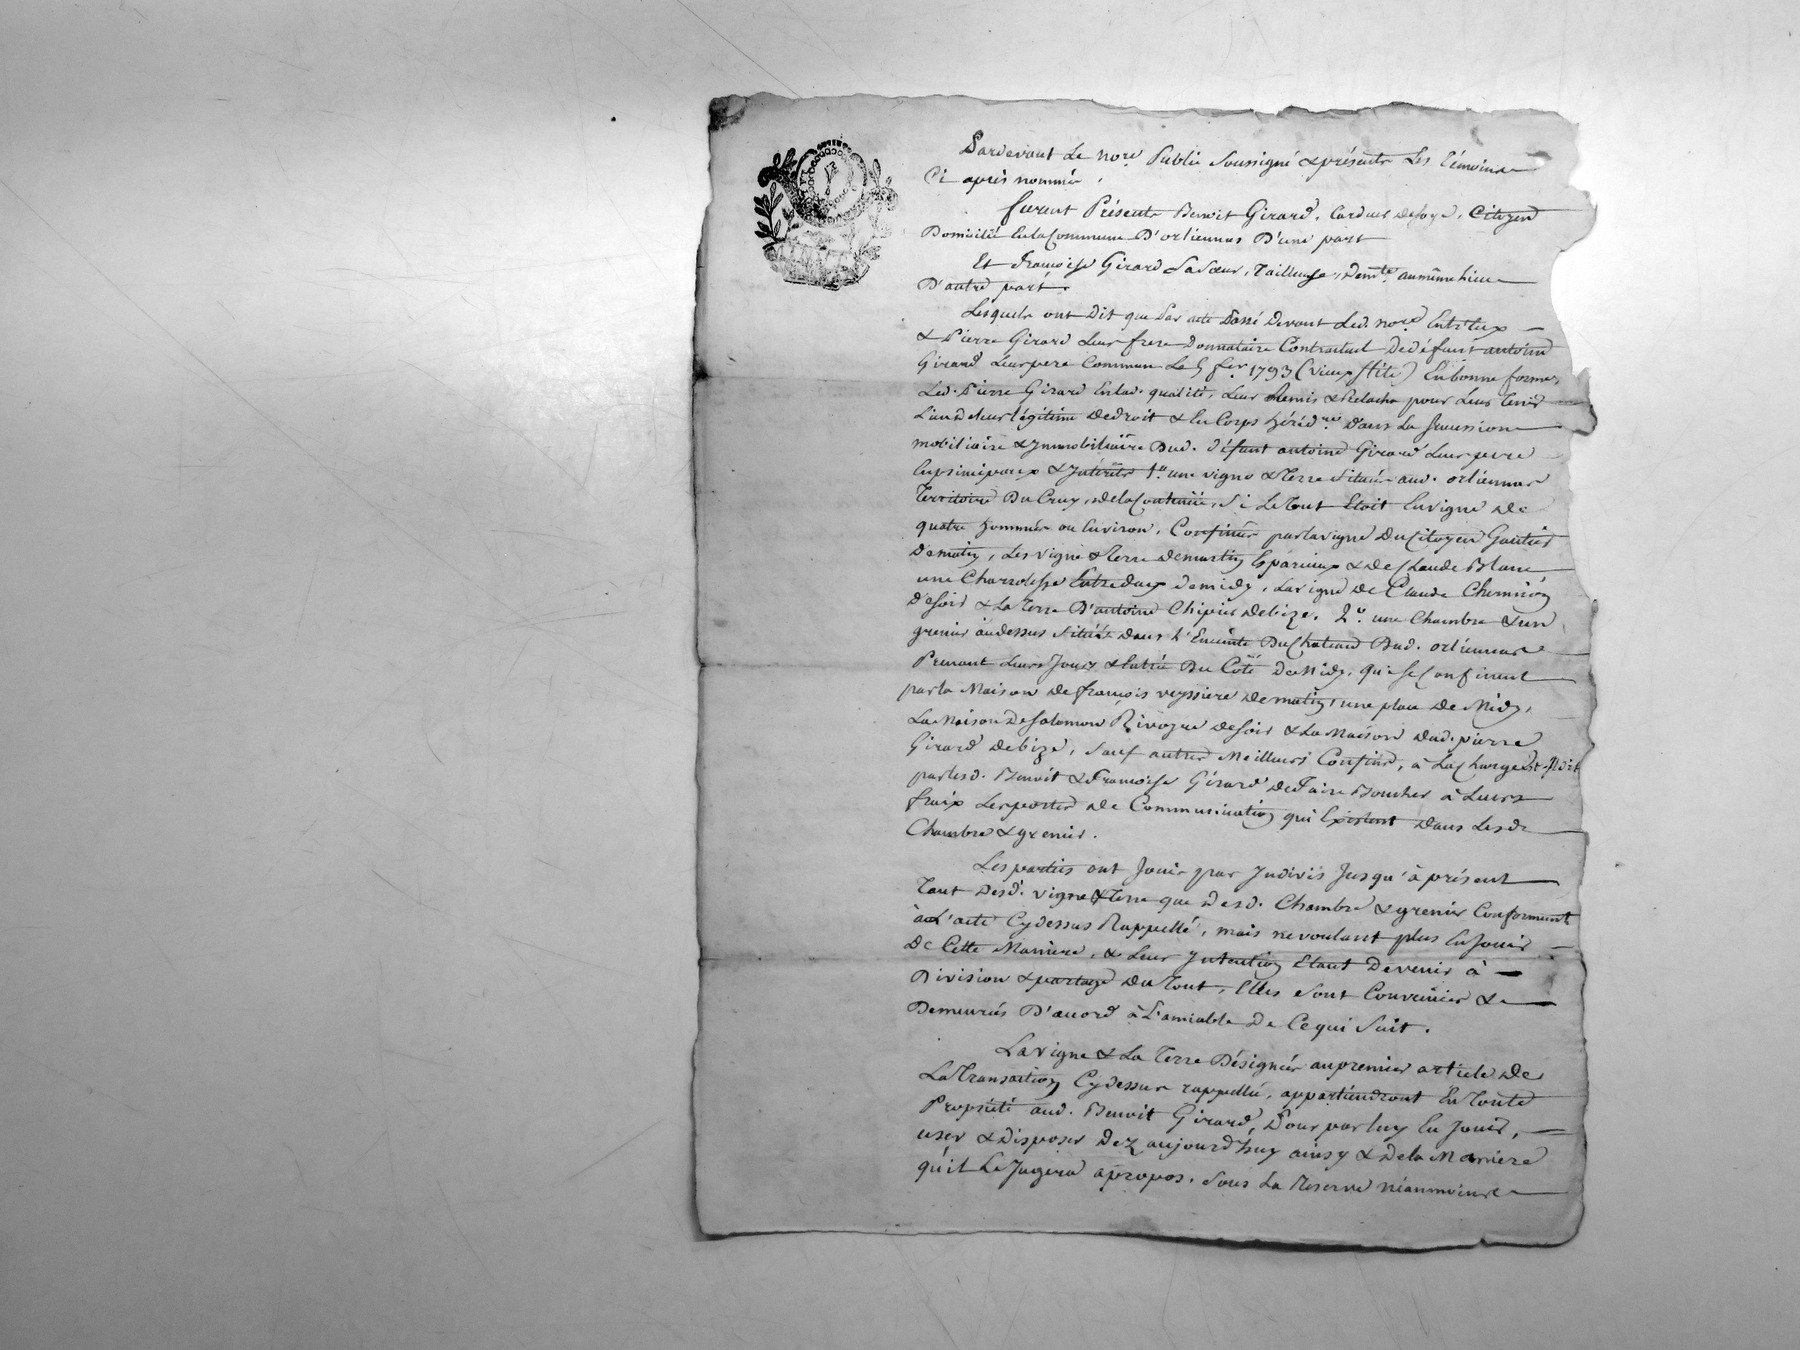 Pardevant Le nore Public Soussigné & présents Les témoins
Ci après nommés,
furent Présents Benoit Girard, Cardeur de soye, Citoyen
Domicilié En la Commune D'orliennas D'une part
Et françoise Girard Sa Sœur, Tailleuse, demte au même lieu
D'autre part.
Lesquels ont Dit que Par acte Passé Devant Led. nore Entr'Eux
& Pierre Girard Leur frere Donnataire Contractuel De défunt antoine
Girard Leur pere Commun Le 5 fer 1793 (vieux stile) En bonne forme,
Led. Pierre Girard En lad. qualité, Leur Remis & Relacha pour Leur tenir
Lieu de Leur légitime De droit & En Corps héréd.re Dans La Succession
mobiliaire & Immobiliaire Dud. défunt antoine Girard Leur pere
En principaux & Intérêts 1.º une vigne & Terre Situées aud. orliennas
Territoire Du Cruy, de la Contenue, Si Le Tout Etoit En vigne de
quatre hommées ou Environ, Confinés par la vigne Du Citoyen Gautier
De matin, Les vigne & Terre De martin Eparieux & de Claude Blanc,
une Charrolesse Entredeux de midy, La vigne de Claude Chermion
De soir & La Terre D'antoine Chipier de bize. 2.º une Chambre & un
grenier au dessus Situés dans L'Enceinte Du Chateau Dud. orliennas
Prenant Leurs Jours & Entrée Du Coté De Midy, qui se Confinent
par la Maison de françois veyssiere de matin, une place de Midy,
La Maison de Salomon Rivoyre de soir & La Maison dud. pierre
Girard de bize, Sauf autres Meilleurs Confins, à La Charge
par Lesd. Benoit & françoise Girard De faire Boucher à Leurs
fraix Les portes de Communication qui Existent dans Lesd.
Chambre & grenier.
Les parties ont Joui par Indivis Jusqu'à présent
Tant Desd. vigne & Terre que Desd. Chambre & grenier Conformemt
à L'acte Cydessus Rappellé, mais ne voulant plus En Jouir
De Cette Maniere, & Leur Intention Etant De venir à
Division & partage Du Tout, Elles Sont Convenues &
Demeurées D'accord à L'amiable De Ce qui Suit.
La vigne & La Terre Désignées au premier article De
La Transaction Cydessus rappellée, appartiendront En Toute
Propriété aud. Benoit Girard, Pour par luy En Jouir,
user & Disposer Dez aujourd'huy ainsy & De la Maniere
qu'il Le Jugera apropos, Sous La Réserve néanmoins